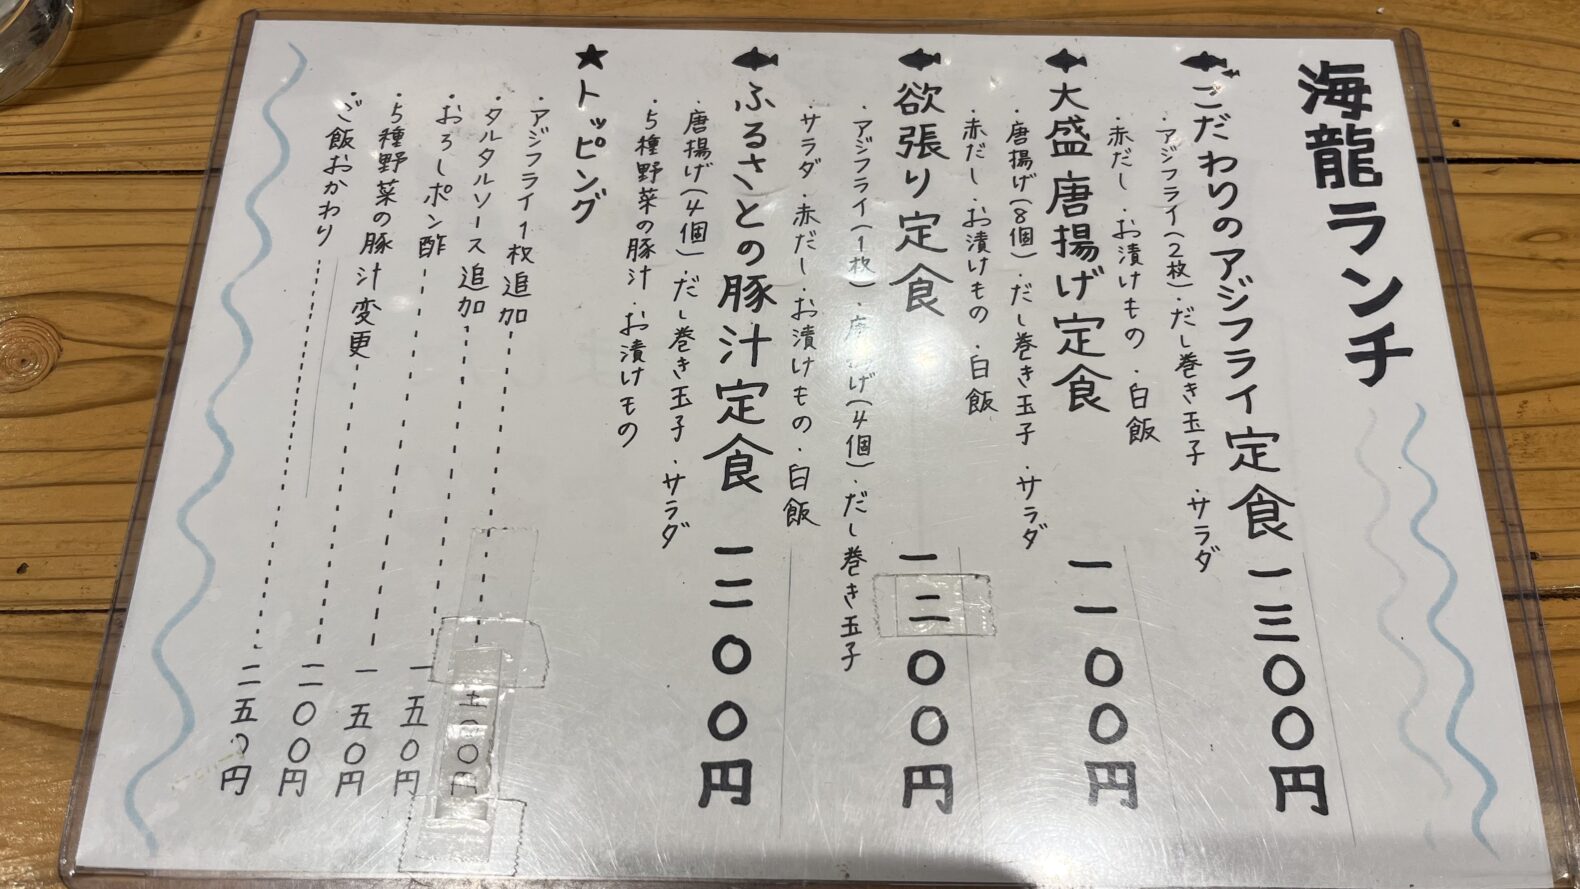 海龍ランチ
こだわりのアジフライ定食 一三〇〇円
・アジフライ(2枚)・だし巻き玉子・サラダ
・赤だし・お漬けもの・白飯
大盛唐揚げ定食 一一〇〇円
・唐揚げ(8個)・だし巻き玉子・サラダ
・赤だし・お漬けもの・白飯
欲張り定食 一二〇〇円
・アジフライ(1枚)・唐揚げ(4個)・だし巻き玉子
・サラダ・赤だし・お漬けもの・白飯
ふるさとの豚汁定食 一二〇〇円
・唐揚げ(4個)・だし巻き玉子・サラダ
・5種野菜の豚汁・お漬けもの
★トッピング
・アジフライ1枚追加 〇〇円
・タルタルソース追加 一五〇円
・おろしポン酢 一五〇円
・5種野菜の豚汁変更 二〇〇円
・ご飯おかわり 二五〇円